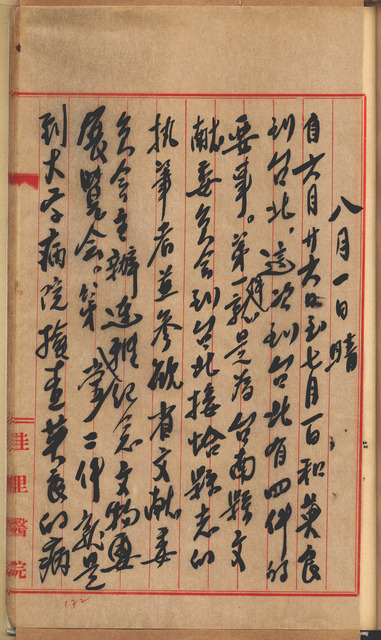 八月一日 晴
自六月廿六日至七月一日和英良
到台北。這次到台北有四件的
要事。第一件就是為台南縣文
獻委員會到台北接洽縣志的
執筆者並參觀省文獻委
員會主辦連雅堂紀念文物展
展覽會。第二件就是
到大學病院檢查英良的病
佳里醫院
172